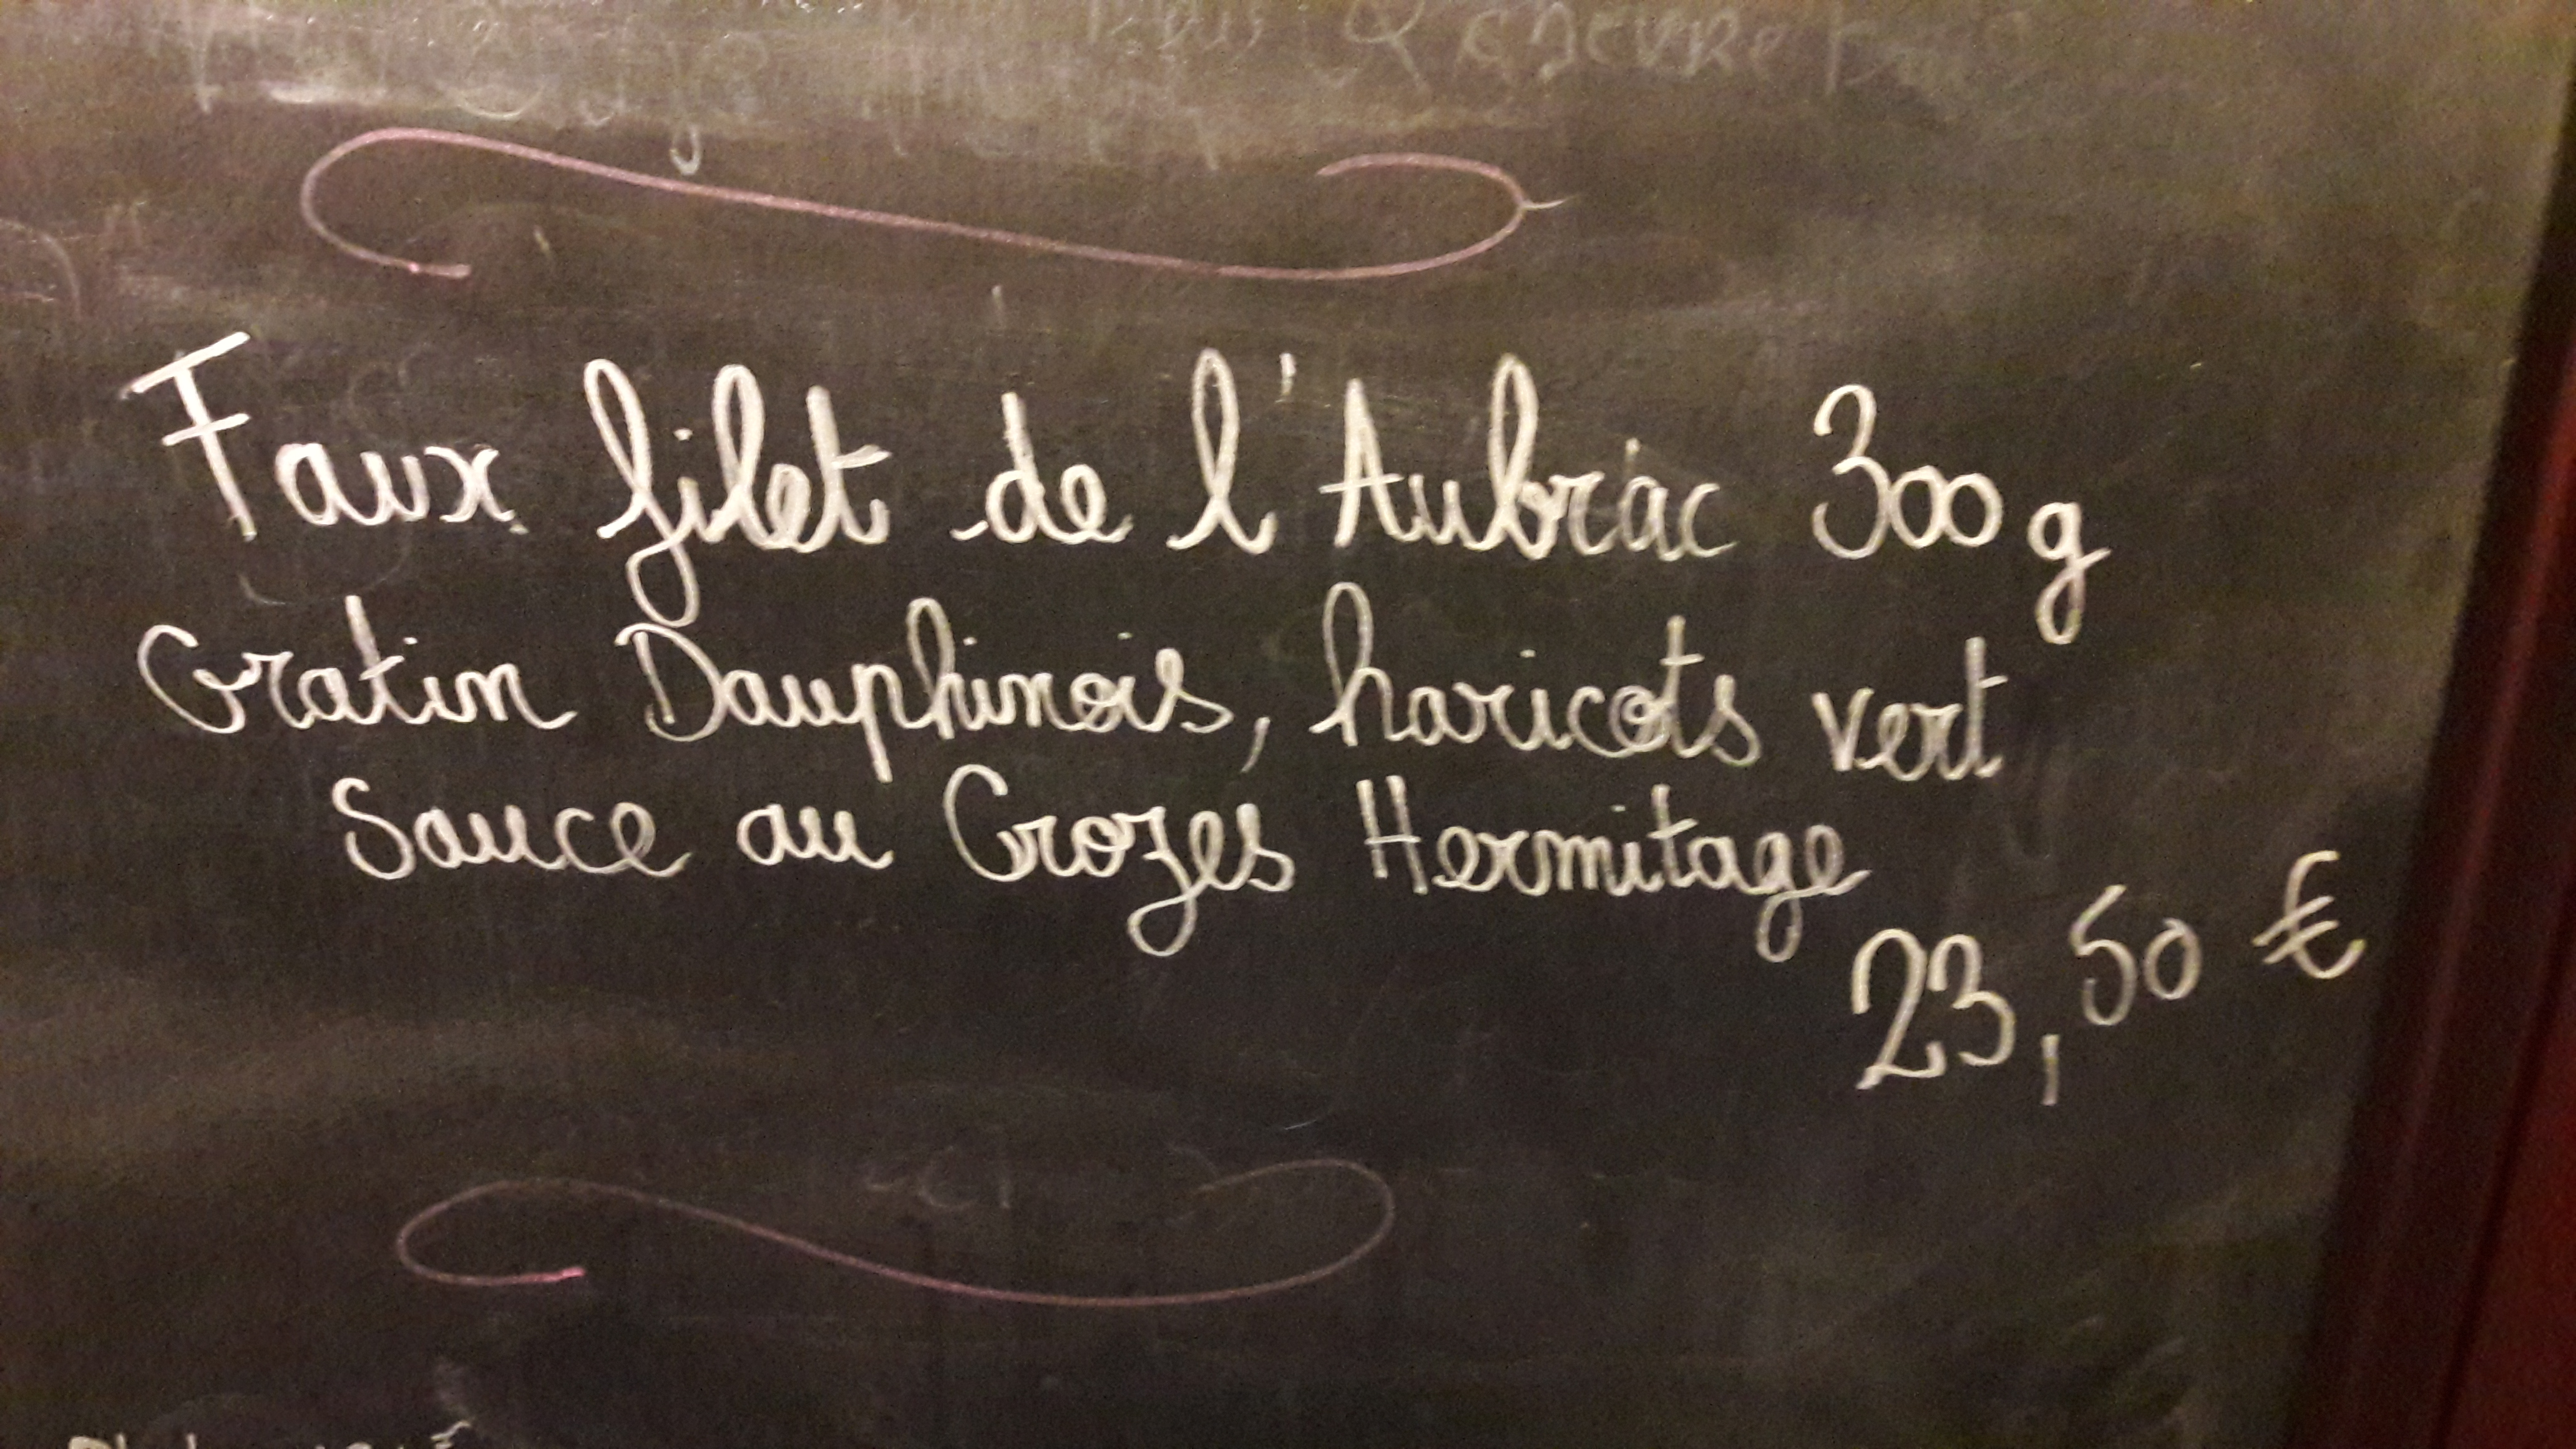 Faux filet de l'Aubrac 300 g
Gratin Dauphinois, haricots vert
Sauce au Crozes Hermitage
23,50 €